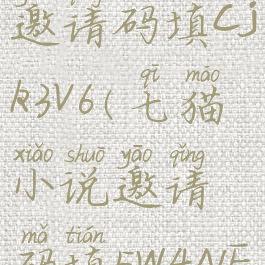 邀请码填Cj
k3V6(七猫
qī māo
小说邀请
xiǎo shuō yāo qǐng
mǎ tián
码填5W4NF